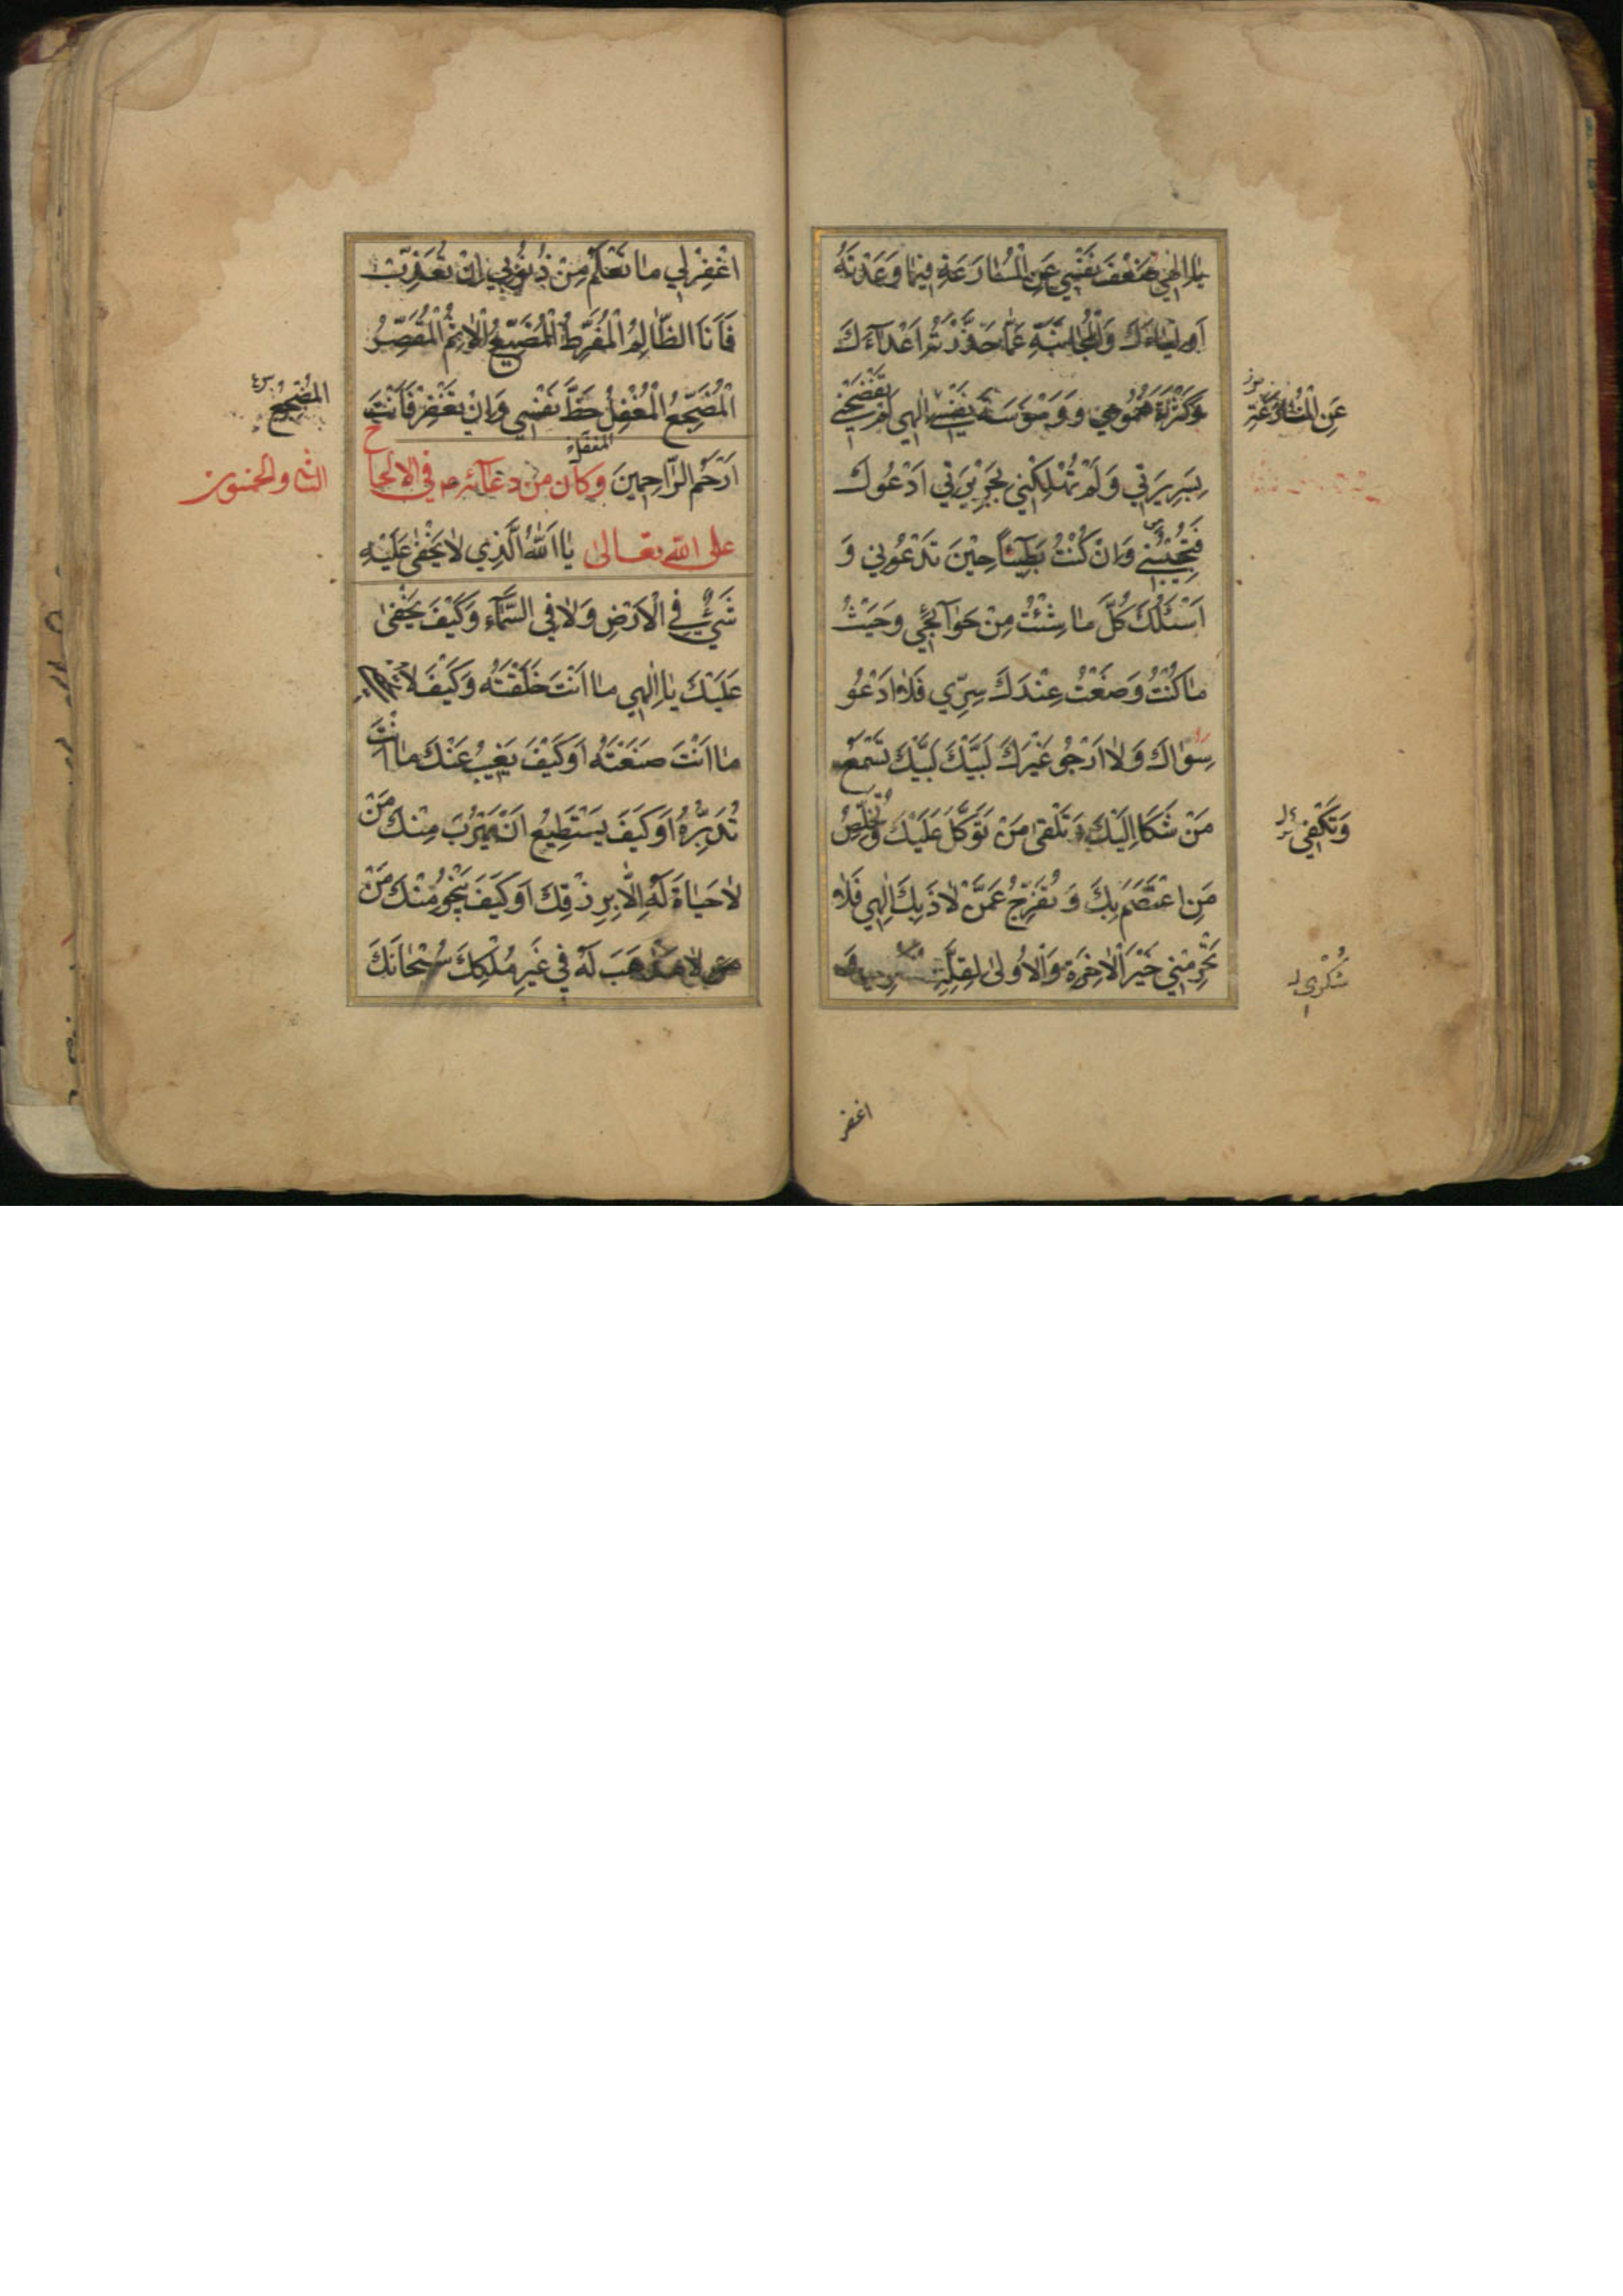 يا إلهي ضَعْفَ نَفْسِي عَنِ الْمُسَارَعَةِ فِيمَا وَعَدْتَهُ
أَوْلِيَاءَكَ وَالْمُجَانَبَةِ عَمَّا حَذَّرْتَهُ أَعْدَآءَكَ
وَكَثْرَةَ هُمُومِي وَوَسْوَسَةَ نَفْسِي إِلٰهِي لَمْ تَفْضَحْنِي
عَنِ الْمُسَارَعَةِ
بِسَرِيرَتِي وَلَمْ تُهْلِكْنِي بِجَرِيرَتِي أَدْعُوكَ
فَتُجِيبُنِي وَإِنْ كُنْتُ بَطِيئاً حِيْنَ تَدْعُونِي وَ
أَسْئَلُكَ كُلَّ مَا شِئْتُ مِنْ حَوَآئِجِي وَحَيْثُ
مَا كُنْتُ وَضَعْتُ عِنْدَكَ سِرِّي فَلَا أَدْعُو
سِوَاكَ وَلَا أَرْجُو غَيْرَكَ لَبَّيْكَ لَبَّيْكَ تَسْمَعُ
مَنْ شَكَا إِلَيْكَ وَتَلْقَى مَنْ تَوَكَّلَ عَلَيْكَ وَتُخَلِّصُ
وَتَكْفِي
مَنِ اعْتَصَمَ بِكَ وَتُفَرِّجُ عَمَّنْ لَاذَ بِكَ إِلٰهِي فَلَا
تَحْرِمْنِي خَيْرَ الْآخِرَةِ وَالْأُولَى لِقِلَّةِ
شُكْرِي
اغفر
اغْفِرْ لِي مَا تَعْلَمُ مِنْ ذُنُوبِي إِنْ تُعَذِّبْ
فَأَنَا الظَّالِمُ الْمُفَرِّطُ الْمُضَيِّعُ الْآثِمُ الْمُقَصِّرُ
الْمُضَجِّعُ الْمُغْفِلُ حَظَّ نَفْسِي وَإِنْ تَغْفِرْ فَأَنْتَ
الْمُضْجِعُ
أَرْحَمُ الرَّاحِمِينَ وَكَانَ مِنْ دُعَآئِهِ ع فِي الْإِلْحَاحِ
الثاني والخمسون
عَلَى اللهِ تَعَالَى يَا اَللهُ الَّذِي لَا يَخْفَى عَلَيْهِ
شَيْءٌ فِي الْأَرْضِ وَلَا فِي السَّمَآءِ وَكَيْفَ يَخْفَى
عَلَيْكَ يَا إِلٰهِي مَا أَنْتَ خَلَقْتَهُ وَكَيْفَ لَا
مَا أَنْتَ صَنَعْتَهُ أَوْ كَيْفَ يَغِيبُ عَنْكَ مَا أَنْتَ
تُدَبِّرُهُ أَوْ كَيْفَ يَسْتَطِيعُ أَنْ يَهْرُبَ مِنْكَ مَنْ
لَا حَيَاةَ لَهُ إِلَّا بِرِزْقِكَ أَوْ كَيْفَ يَنْجُو مِنْكَ مَنْ
لَا مَذْهَبَ لَهُ فِي غَيْرِ مُلْكِكَ سُبْحَانَكَ